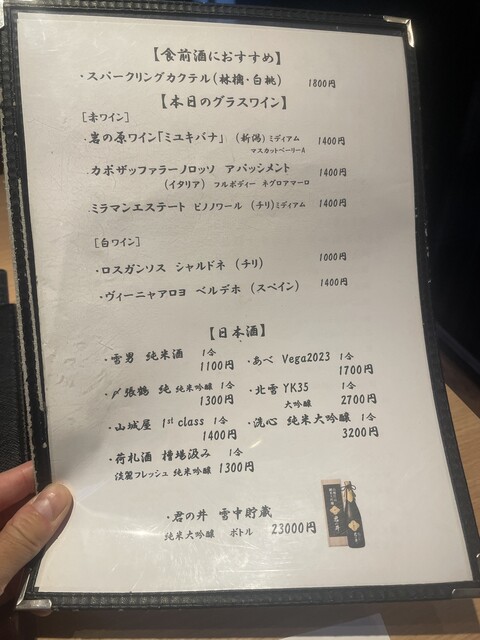 【食前酒におすすめ】
・スパークリングカクテル(林檎・白桃) 1800円
【本日のグラスワイン】
[赤ワイン]
・岩の原ワイン「ミユキバナ」 (新潟) ミディアム 1400円
マスカットベーリーA
・カボザッファラーノロッソ アパッシメント 1400円
(イタリア) フルボディー ネグロアマーロ
・ミラマンエステート ピノノワール (チリ)ミディアム 1400円
[白ワイン]
・ロスガンソス シャルドネ (チリ) 1000円
・ヴィーニャアロヨ ベルデホ (スペイン) 1400円
【日本酒】
・雪男 純米酒 1合
1100円
・〆張鶴 純 純米吟醸 1合
1300円
・山城屋 1st class 1合
1400円
・荷札酒 槽場汲み 1合
淡麗フレッシュ 純米吟醸 1300円
・あべ Vega2023 1合
1700円
・北雪 YK35 1合
大吟醸 2700円
・洗心 純米大吟醸 1合
3200円
・君の井 雪中貯蔵
純米大吟醸 ボトル 23000円